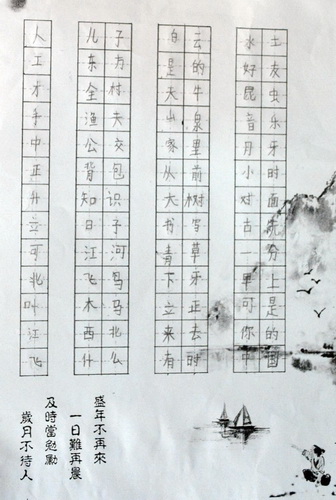 人工才手中正升立可北叶江飞
儿子
东方
全村
渔夫
公交
背包
知识
日子
江河
飞鸟
木马
西北
什么
白云
是的
天牛
山泉
家里
从前
大树
书写
青草
下牙
立正
来去
有时
水土
好友
昆虫
音乐
月牙
小时
对面
古玩
一分
早上
可是
你的
中国
盛年不再來
一日難再晨
及時當勉勵
歲月不待人